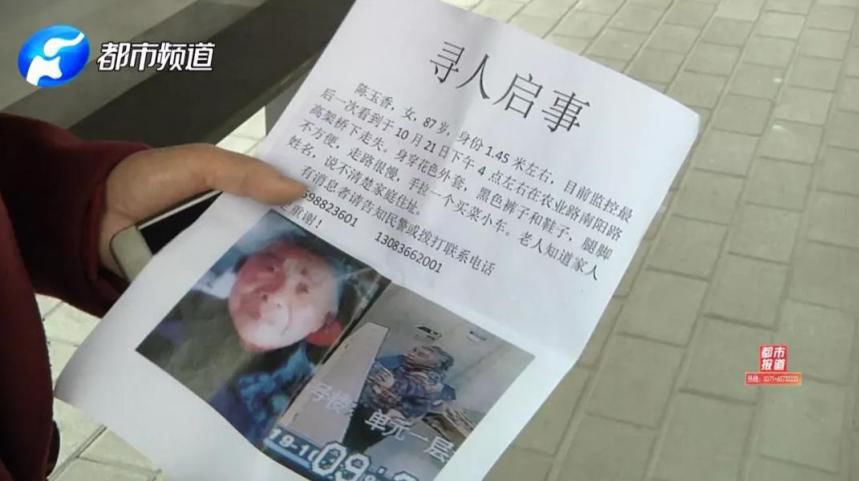 都市频道
寻人启事
陈玉香，女，87岁，身份1.45米左右，目前监控最
后一次看到于10月21日下午4点左右在农业路南阳路
高架桥下走失。身穿花色外套，黑色裤子和鞋子，腿脚
不方便，走路很慢，手拉一个买菜小车。老人知道家人
姓名，说不清楚家庭住址。
有消息者请告知民警或拨打联系电话
698823601 13083662001
重谢！
单元一层
都市
报道